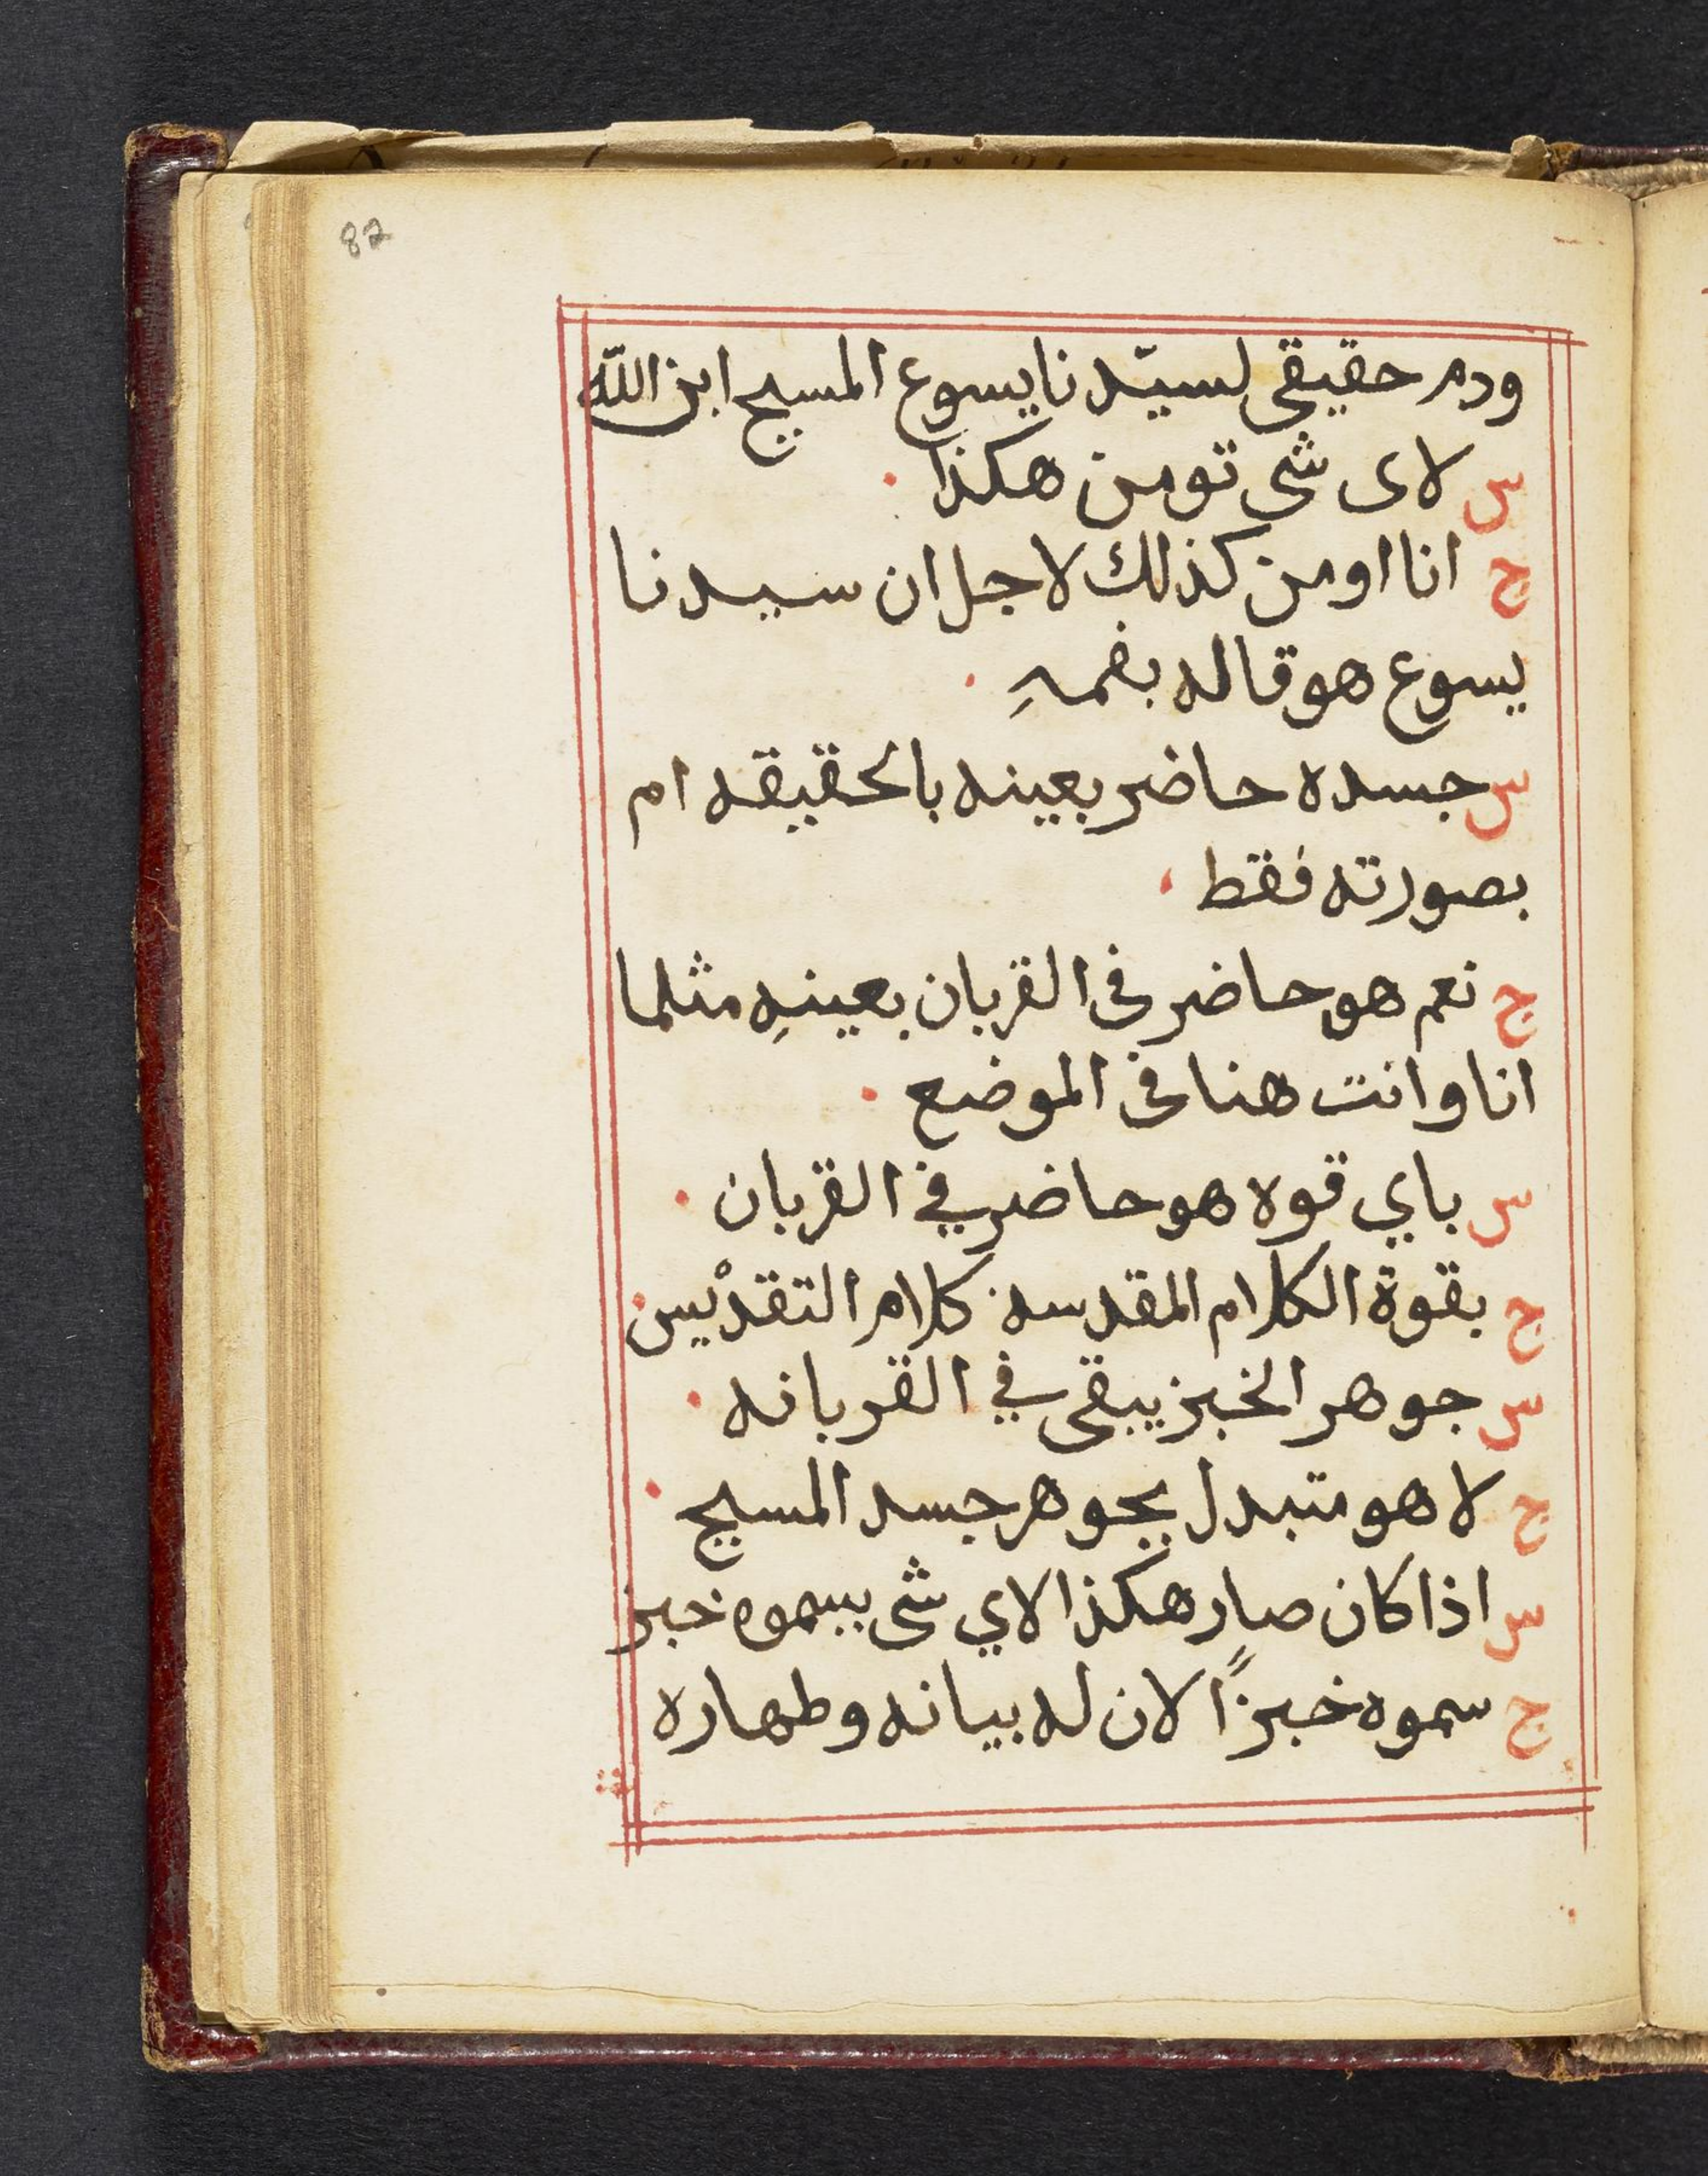 82
ودم حقيقى لسيّدنا يسوع المسيح ابن اللّه
س لاى شى تومن هكذا ٠
ج انا اومن كذلك لاجل ان سيدنا
يسوع هو قاله بفمهِ ٠
س جسده حاضر بعينه بالحقيقه ام
بصورته فقط ٠
ج نعم هو حاضر فى القربان بعينهِ مثلما
انا وانت هنا فى الموضع ٠
س باي قوه هو حاضر في القربان ٠
ج بقوة الكلام المقدسه ٠ كلام التقدْيس ٠
س جوهر الخبز يبقى في القربانه ٠
ج لا هو متبدل بجوهر جسد المسيح ٠
س اذا كان صار هكذا لاي شى بيسموه خبز
ج سموه خبزًا لان له بيانه وطهاره